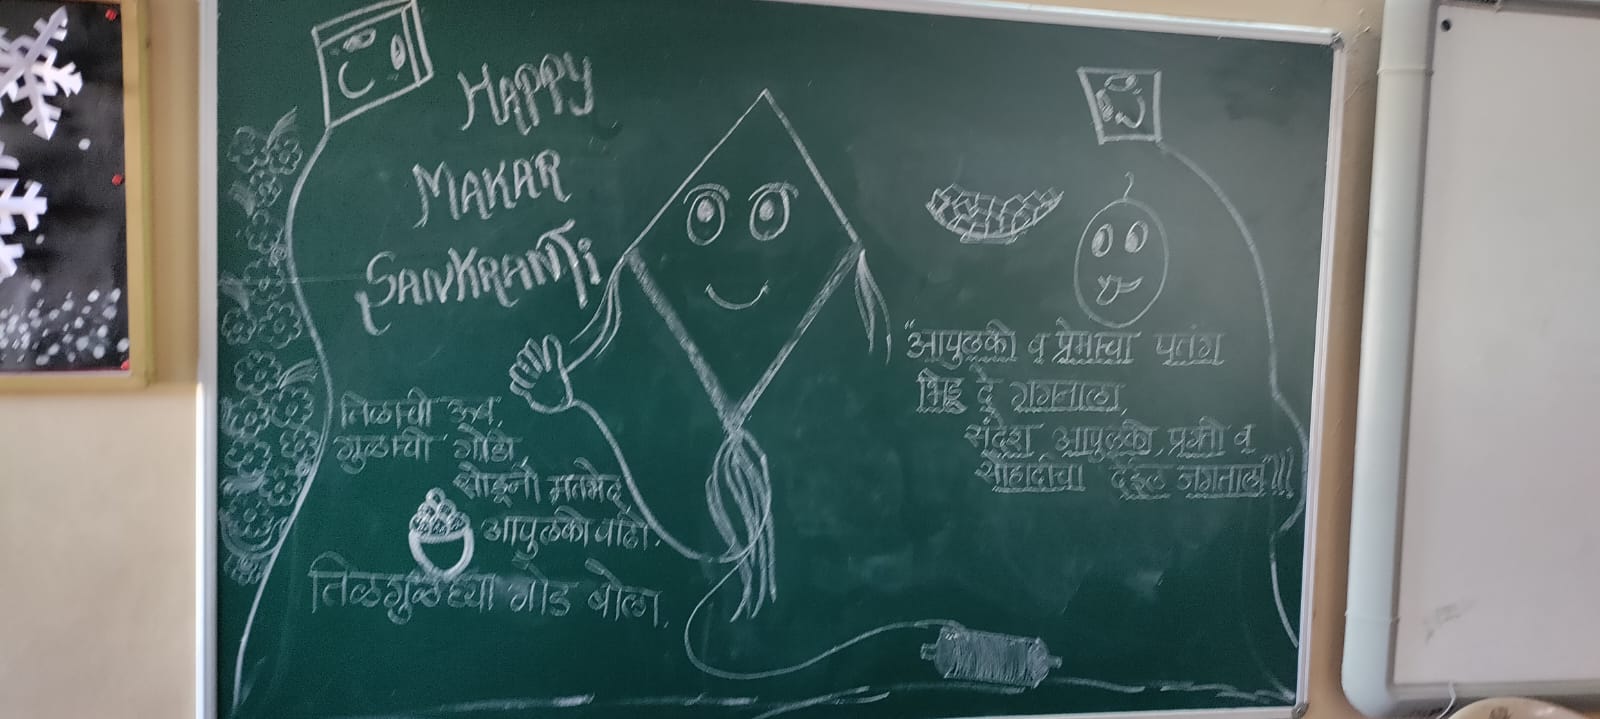 HAPPY
MAKAR
SANKRANTi
तिळाची ऊब,
गुळाची गोडी,
सोडूनी मतभेद
आपुलकी वाढो.
तिळगुळ घ्या गोड बोला.
"आपुलकी व प्रेमाचा पतंग
भिडू दे गगनाला,
संदेश आपुलकी, प्रगती व
सोहार्दाचा देईल जगताला!!!